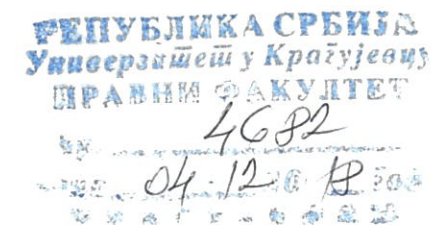 РЕПУБЛИКА СРБИЈА
Универзитет у Крагујевцу
ПРАВНИ ФАКУЛТЕТ
Бр. 4682
04.12 18 год